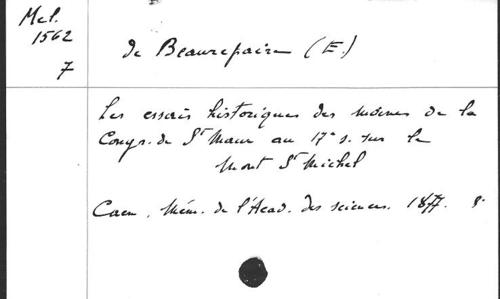 Mel.
1562
7
de Beaurepaire (E.)
Les essais historiques des moines de la
Congr. de St Maur au 17e s. sur le
Mont St Michel
Caen, Mém. de l'Acad. des sciences. 1877. 8°